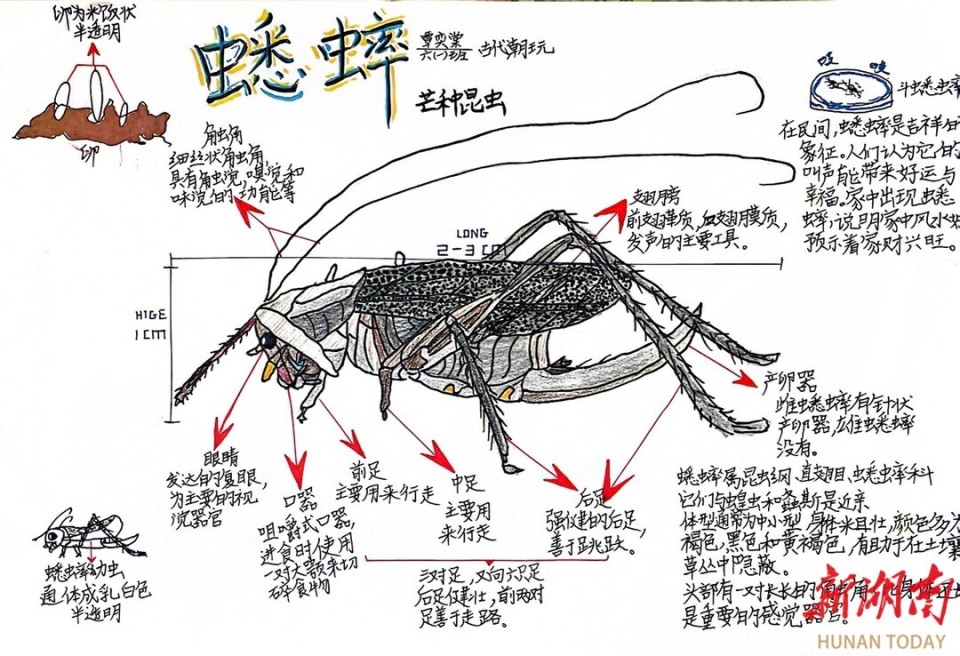 卵为米饭状
半透明
卵
蟋蟀
六(1)班
古代朝玩
芒种昆虫
触角
细丝状触角,
具有触觉,嗅觉和
味觉的功能等
翅膀
前翅革质,后翅膜质,
发声的主要工具。
斗蟋蟀
在民间,蟋蟀是吉祥的
象征。人们认为它的
叫声能带来好运与
幸福。家中出现蟋
蟀,说明家中风水好
预示着家财兴旺。
LONG
2-3CM
HIGE
1CM
眼睛
发达的复眼,
为主要的视
觉器官
口器
咀嚼式口器,
进食时使用
一对大颚来切
碎食物
前足
主要用来行走
中足
主要用
来行走
后足
强健的后足,
善于跳跃。
三对足,又向六只足
后足健壮,前两对
足善于走路。
产卵器
雌蟋蟀有针状
产卵器,雄蟋蟀
没有。
蟋蟀幼虫
通体成乳白色
半透明
蟋蟀属昆虫纲、直翅目、蟋蟀科
它们与蝗虫和螽斯是近亲
体型通常为中小型,身体粗壮,颜色多为
褐色,黑色和黄褐色,有助于在土壤
草丛中隐蔽。
头部有一对长长的触角,比身体还长
是重要的感觉器官。
新湖南
HUNAN TODAY